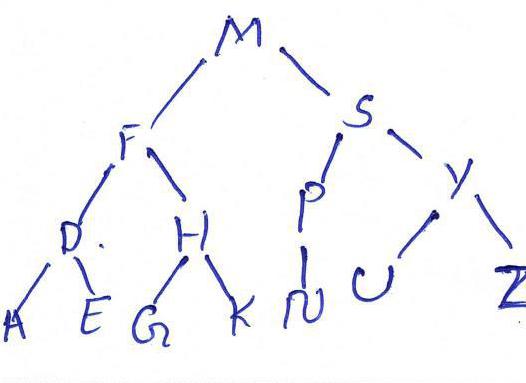 M
F S
D H P Y
A E G K N U Z